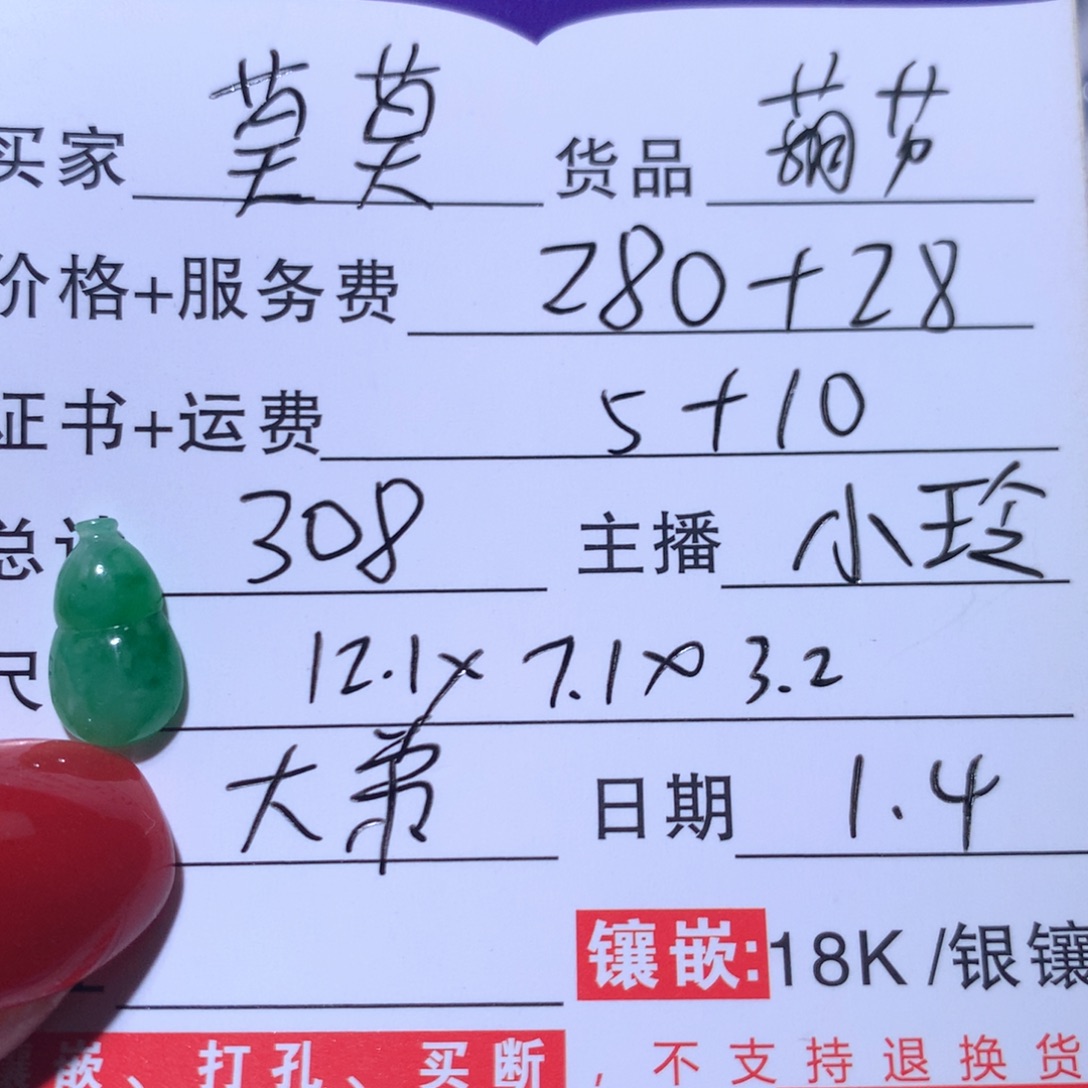 买家 莫莫 货品 葫芦
价格+服务费 280+28
证书+运费 5+10
总计 308 主播 小玲
尺 12.1×7.1×3.2
大弟 日期 1.4
镶嵌:18K/银镶
镶嵌、打孔、买断,不支持退换货